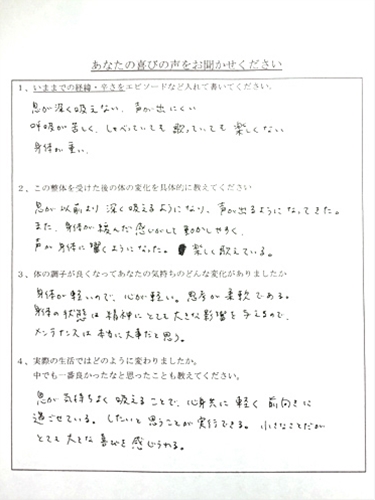 あなたの喜びの声をお聞かせください
1、いままでの経緯・辛さをエピソードなど入れて書いてください。
息が深く吸えない、声が出にくい
呼吸が苦しく、しゃべっていても歌っていても楽しくない
身体が重い、
2、この整体を受けた後の体の変化を具体的に教えてください
息が以前より深く吸えるようになり、声が出るようになってきた。
また、身体が緩んだ感いがして動かしやすく、
声が身体に響くようになった。楽しく歌えている。
3、体の調子が良くなってあなたの気持ちのどんな変化がありましたか
身体が軽いので、心が軽い。思考が柔軟である。
身体の状態は精神にとても大きな影響を与えるので、
メンテナンスは本当に大事だと思う。
4、実際の生活ではどのように変わりましたか。
中でも一番良かったなと思ったことも教えてください。
息が気持ちよく吸えることで、心身共に軽く前向きに
過ごせている。したいと思うことが実行できる。小さなことだが
とても大きな喜びを感じられる。